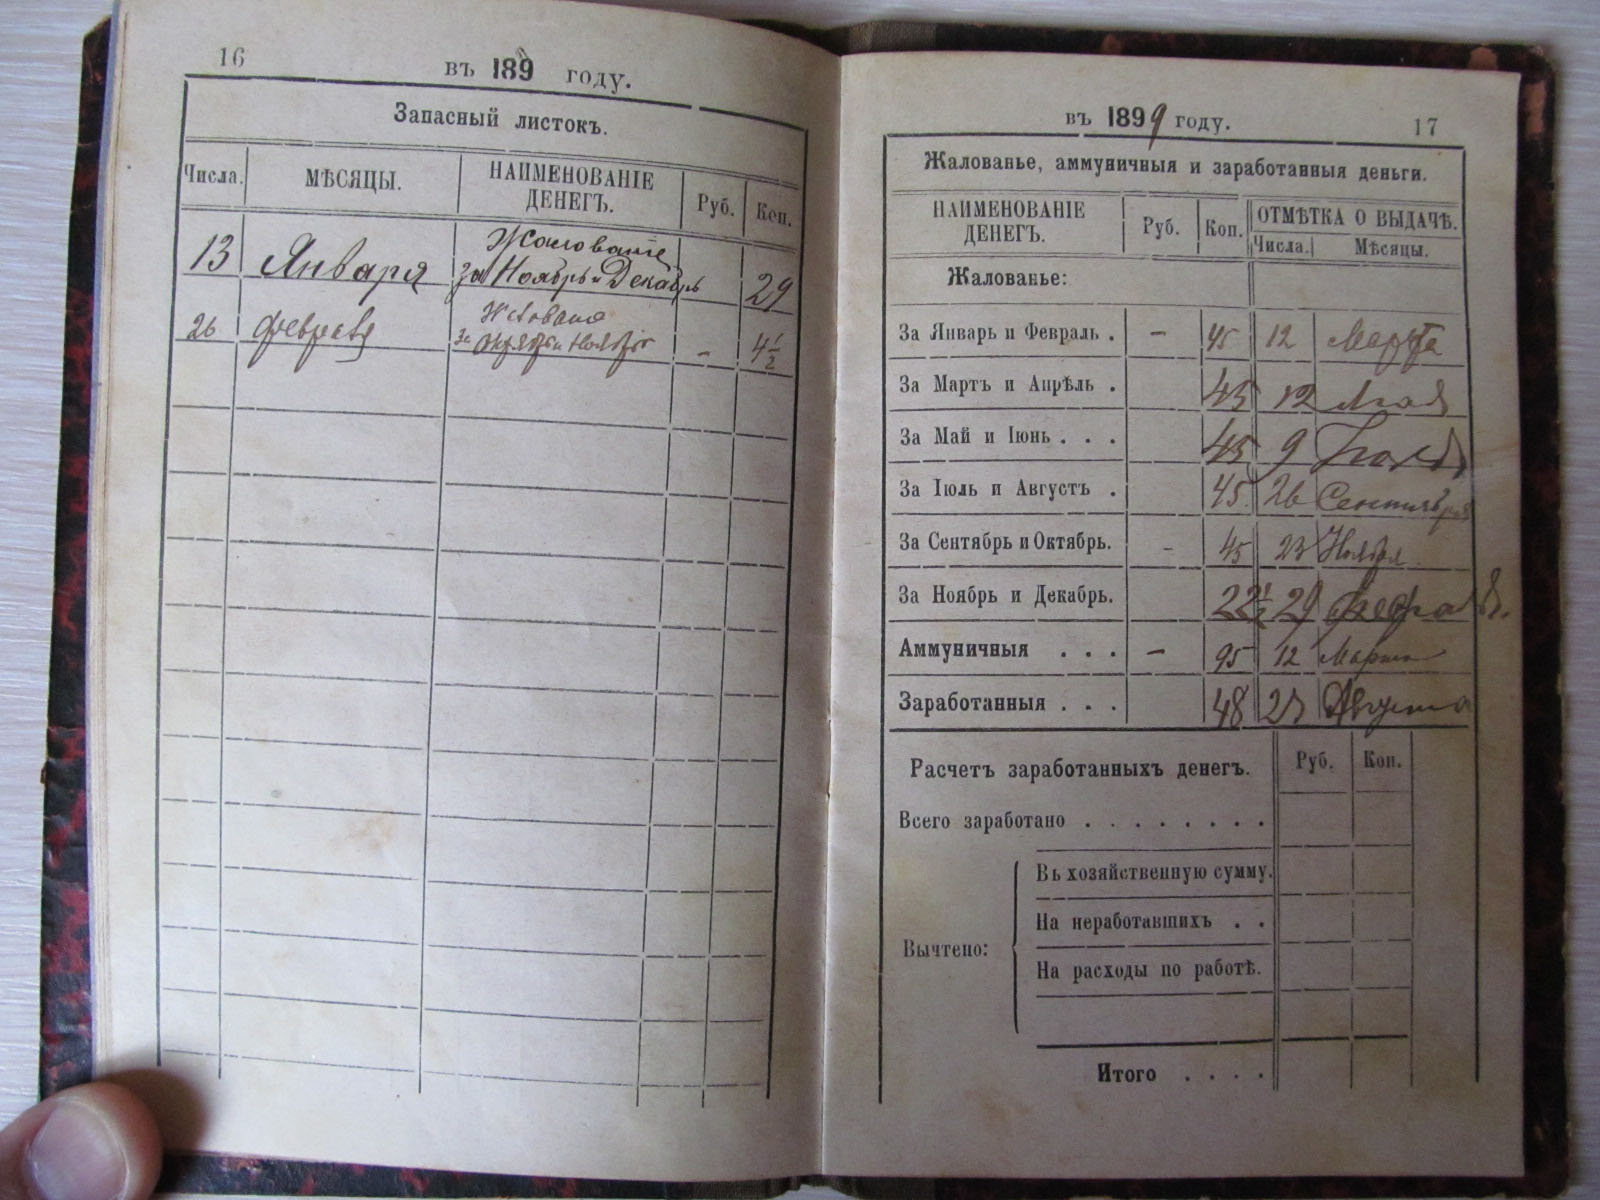 16
въ 189 году.
Запасный листокъ.
Числа. МѢСЯЦЫ. НАИМЕНОВАНІЕ ДЕНЕГЪ. Руб. Коп.
13 Января Жалованіе
за Ноябрь и Декабрь 29
26 февраля
за Ноябрь - 4½
въ 1899 году. 17
Жалованье, аммуничныя и заработанныя деньги.
НАИМЕНОВАНІЕ ДЕНЕГЪ. Руб. Коп. ОТМѢТКА О ВЫДАЧѢ.
Числа. Мѣсяцы.
Жалованье:
За Январь и Февраль . - 45 12 Марта
За Мартъ и Апрѣль . 45 12 Мая
За Май и Іюнь . . . 45 9
За Іюль и Августъ . 45 26 Сентября
За Сентябрь и Октябрь. - 45 23 Ноября
За Ноябрь и Декабрь. 22½ 29 Февраля
Аммуничныя . . . - 95 12 Марта
Заработанныя . . . 48 Августа
Расчетъ заработанныхъ денегъ. Руб. Коп.
Всего заработано . . . . . . . .
Вычтено:
Въ хозяйственную сумму.
На неработавшихъ . .
На расходы по работѣ.
Итого . . . .